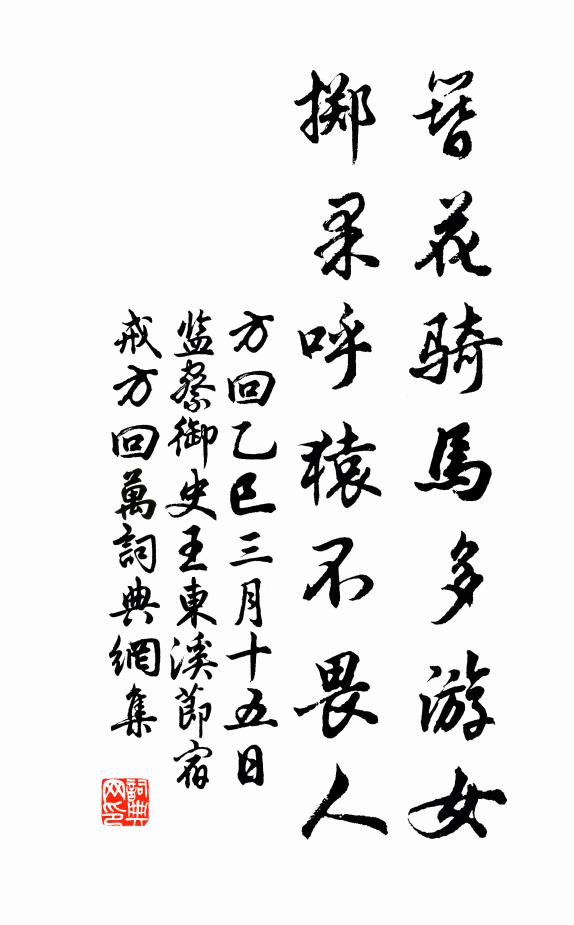 簪花骑馬多游女
掷果呼猿不畏人
方回乙巳三月十五日
监察御史王東溪節宿
戒方回萬詞典網集
詞典
网印